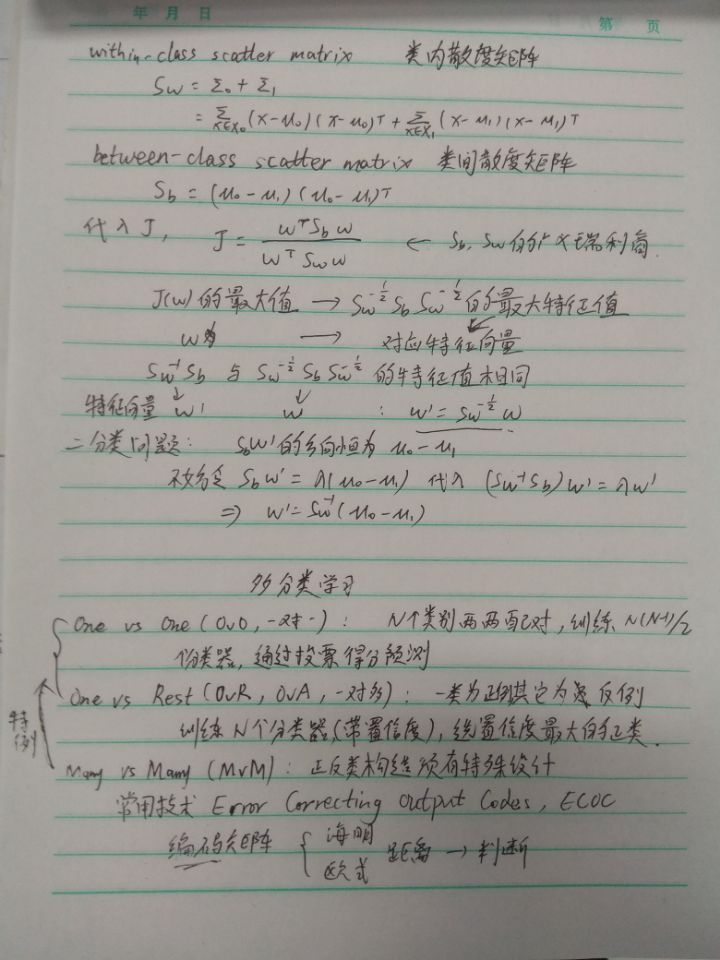 年 月 日
第 页
within-class scatter matrix 类内散度矩阵
Sw = Σ₀ + Σ₁
= Σ_{x∈X₀} (x-μ₀)(x-μ₀)ᵀ + Σ_{x∈X₁} (x-μ₁)(x-μ₁)ᵀ
between-class scatter matrix 类间散度矩阵
S_b = (μ₀-μ₁)(μ₀-μ₁)ᵀ
代入J, J = wᵀS_b w / wᵀS_w w ← S_b, S_w的广义瑞利商.
J(w)的最大值 → S_w^{-1/2} S_b S_w^{-1/2}的最大特征值
w → 对应特征向量
S_w⁻¹S_b 与 S_w^{-1/2} S_b S_w^{-1/2} 的特征值相同
特征向量 w' w : w' = S_w^{-1/2} w
二分类问题: S_b w'的方向恒为 μ₀-μ₁
不妨令 S_b w' = λ(μ₀-μ₁) 代入 (S_w⁻¹S_b)w' = λw'
⇒ w' = S_w⁻¹(μ₀-μ₁)
多分类学习
One vs One (OvO, 一对一): N个类别两两配对, 训练 N(N-1)/2
分类器, 通过投票得分预测
One vs Rest (OvR, OvA, 一对多): 一类为正例其它为反例
训练N个分类器(带置信度), 选置信度最大的正类.
特例
Many vs Many (MvM): 正反类构造须有特殊设计
常用技术 Error Correcting Output Codes, ECOC
编码矩阵 { 海明 欧式 距离 → 判断